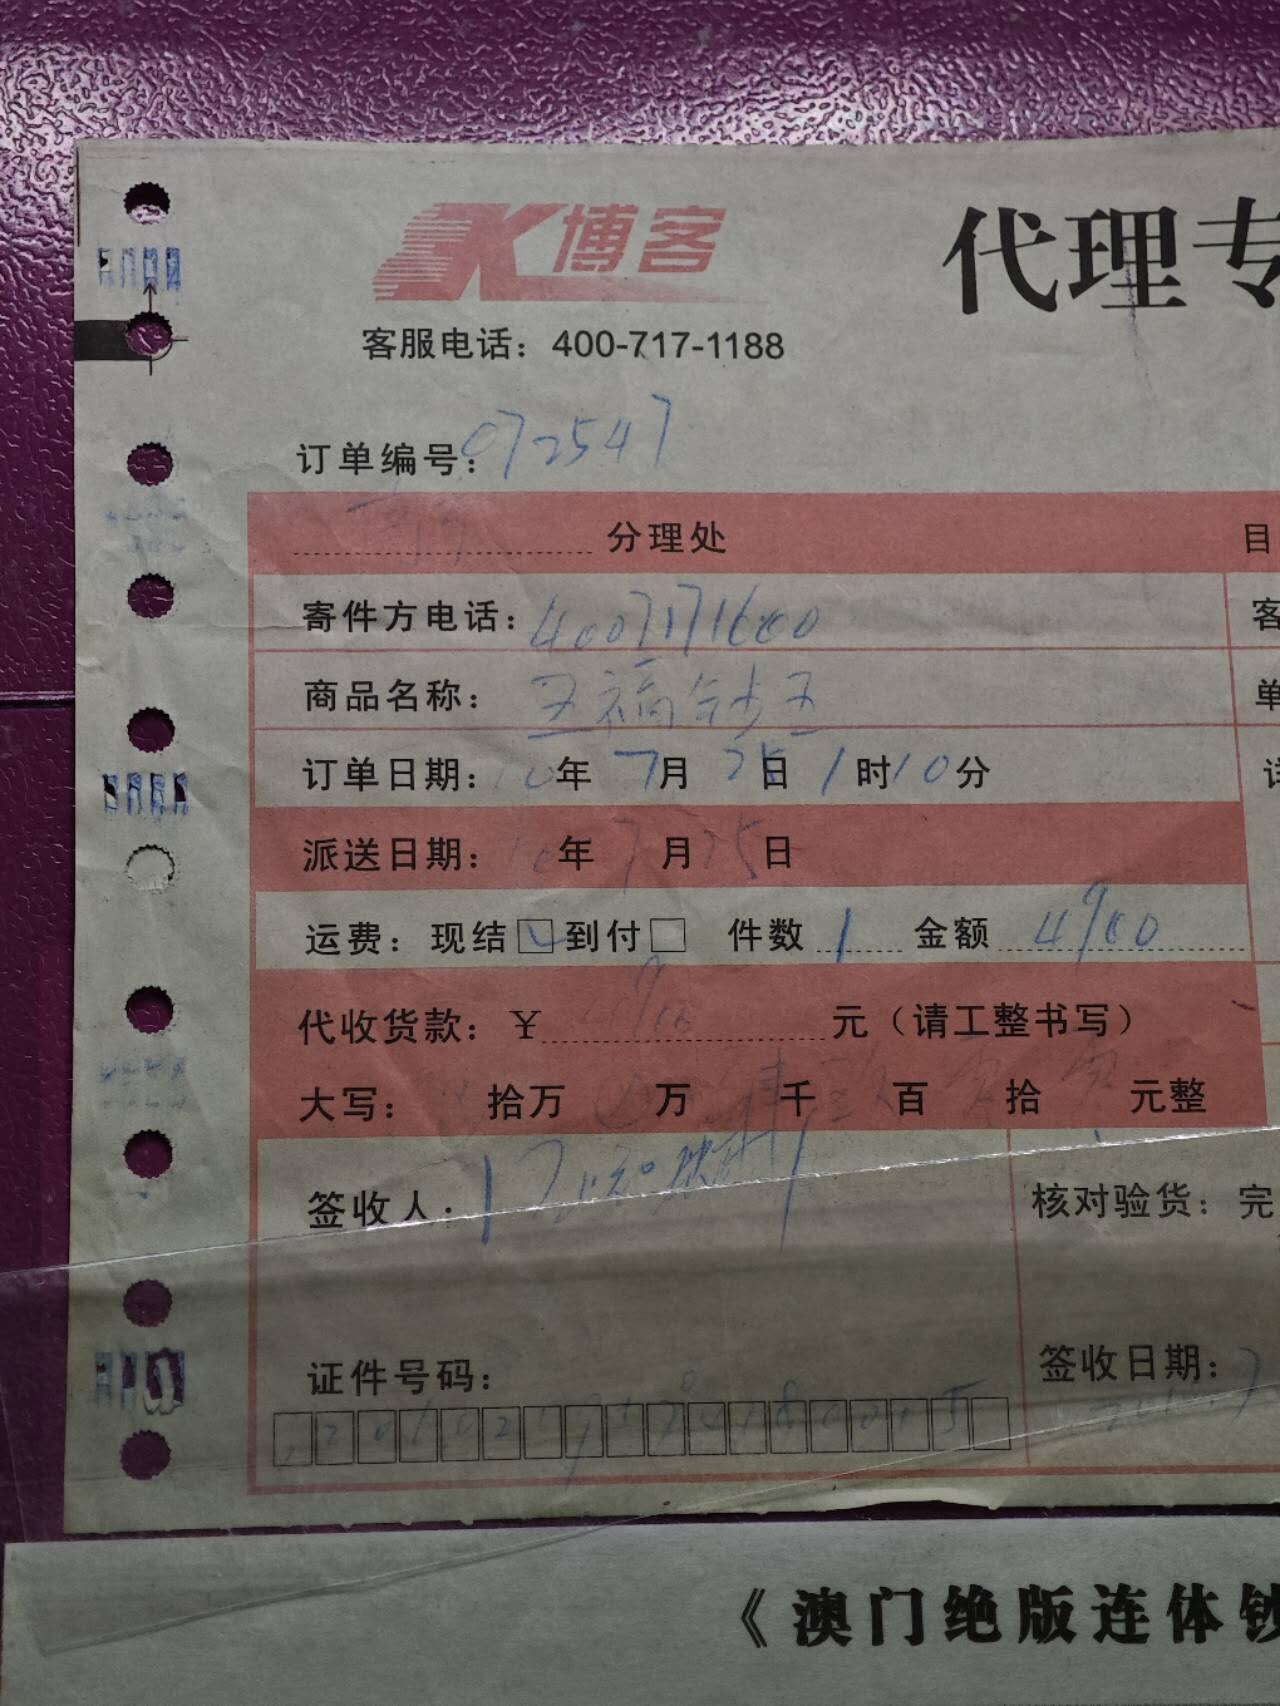 K博客
代理专
客服电话：400-717-1188
订单编号：072547
分理处
目
寄件方电话：4007171600
客
商品名称：五福钞王
单
订单日期：10年7月25日1时10分
派送日期：10年7月25日
运费：现结☑到付□ 件数1金额4900
代收货款：￥4900元（请工整书写）
大写：拾万 万 千 百 拾 元整
签收人：
核对验货：完
证件号码：
签收日期：
《澳门绝版连体钞